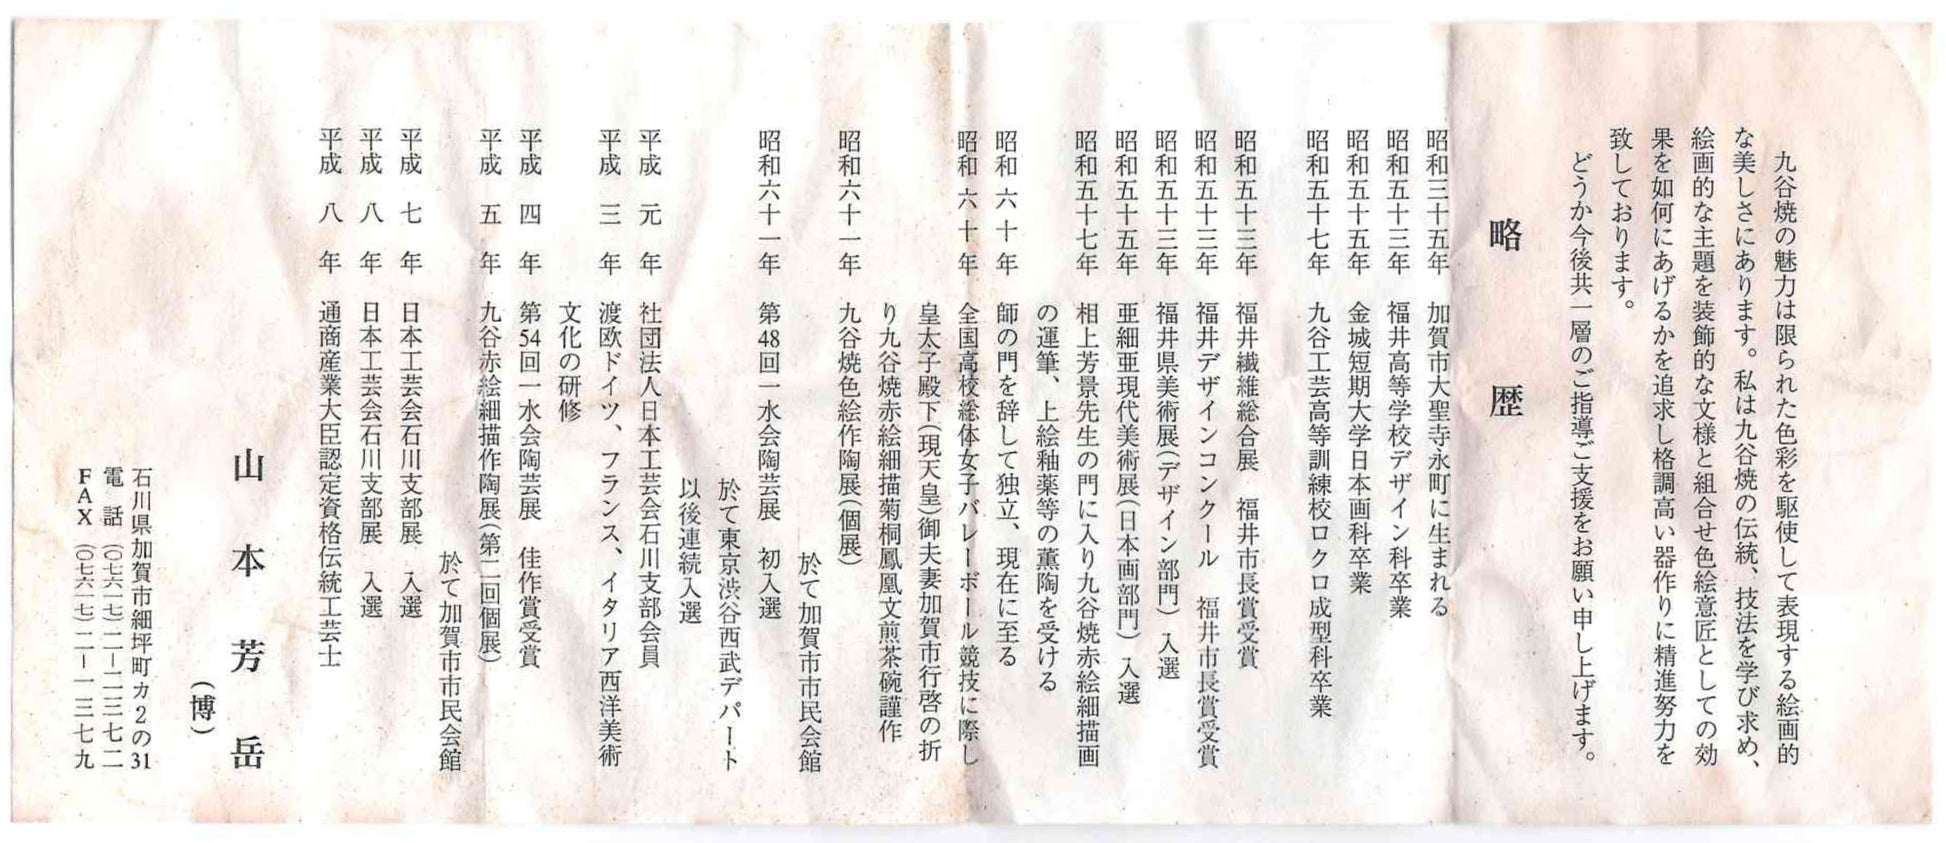 九谷焼の魅力は限られた色彩を駆使して表現する絵画的
な美しさにあります。私は九谷焼の伝統、技法を学び求め、
絵画的な主題を装飾的な文様と組合せ色絵意匠としての効
果を如何にあげるかを追求し格調高い器作りに精進努力を
致しております。
どうか今後共一層のご指導ご支援をお願い申し上げます。
略歴
昭和三十五年 加賀市大聖寺永町に生まれる
昭和五十三年 福井高等学校デザイン科卒業
昭和五十五年 金城短期大学日本画科卒業
昭和五十七年 九谷工芸高等訓練校ロクロ成型科卒業
昭和五十三年 福井繊維総合展 福井市長賞受賞
昭和五十三年 福井デザインコンクール 福井市長賞受賞
昭和五十三年 福井県美術展(デザイン部門) 入選
昭和五十五年 亜細亜現代美術展(日本画部門) 入選
昭和五十七年 相上芳景先生の門に入り九谷焼赤絵細描画
の運筆、上絵釉薬等の薫陶を受ける
昭和六十年 師の門を辞して独立、現在に至る
昭和六十年 全国高校総体女子バレーボール競技に際し
皇太子殿下(現天皇)御夫妻加賀市行啓の折
り九谷焼赤絵細描菊桐鳳凰文煎茶碗謹作
昭和六十一年 九谷焼色絵作陶展(個展)
於て加賀市市民会館
昭和六十一年 第48回一水会陶芸展 初入選
於て東京渋谷西武デパート
以後連続入選
平成元年 社団法人日本工芸会石川支部会員
平成三年 渡欧ドイツ、フランス、イタリア西洋美術
文化の研修
平成四年 第54回一水会陶芸展 佳作賞受賞
平成五年 九谷赤絵細描作陶展(第二回個展)
於て加賀市市民会館
平成七年 日本工芸会石川支部展 入選
平成八年 日本工芸会石川支部展 入選
平成八年 通商産業大臣認定資格伝統工芸士
山本芳岳
(博)
石川県加賀市細坪町カ2の31
電話 (〇七六一七)二―二三七二
FAX (〇七六一七)二―一三七九